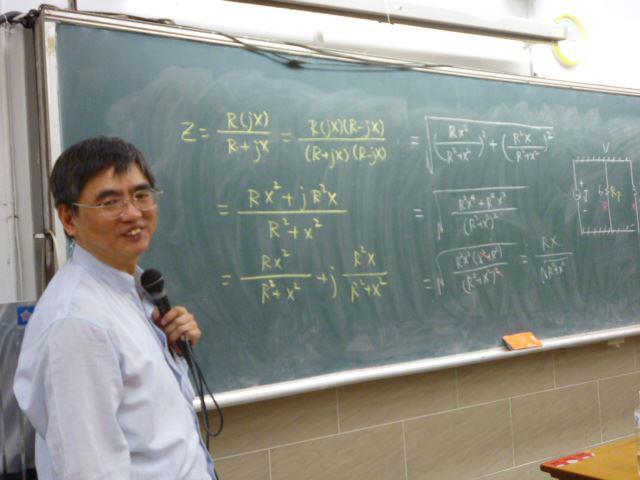 Z = R(jX) / R+jX = R(jX)(R-jX) / (R+jX)(R-jX)
= RX² + jR²X / R² + X²
= RX² / R²+X² + j R²X / R²+X²
= √( (RX² / R²+X²)² + (R²X / R²+X²)² )
= √( R²X⁴ + R⁴X² / (R²+X²)² )
= √( R²X²(X²+R²) / (R²+X²)² ) = RX / √R²+X²
V